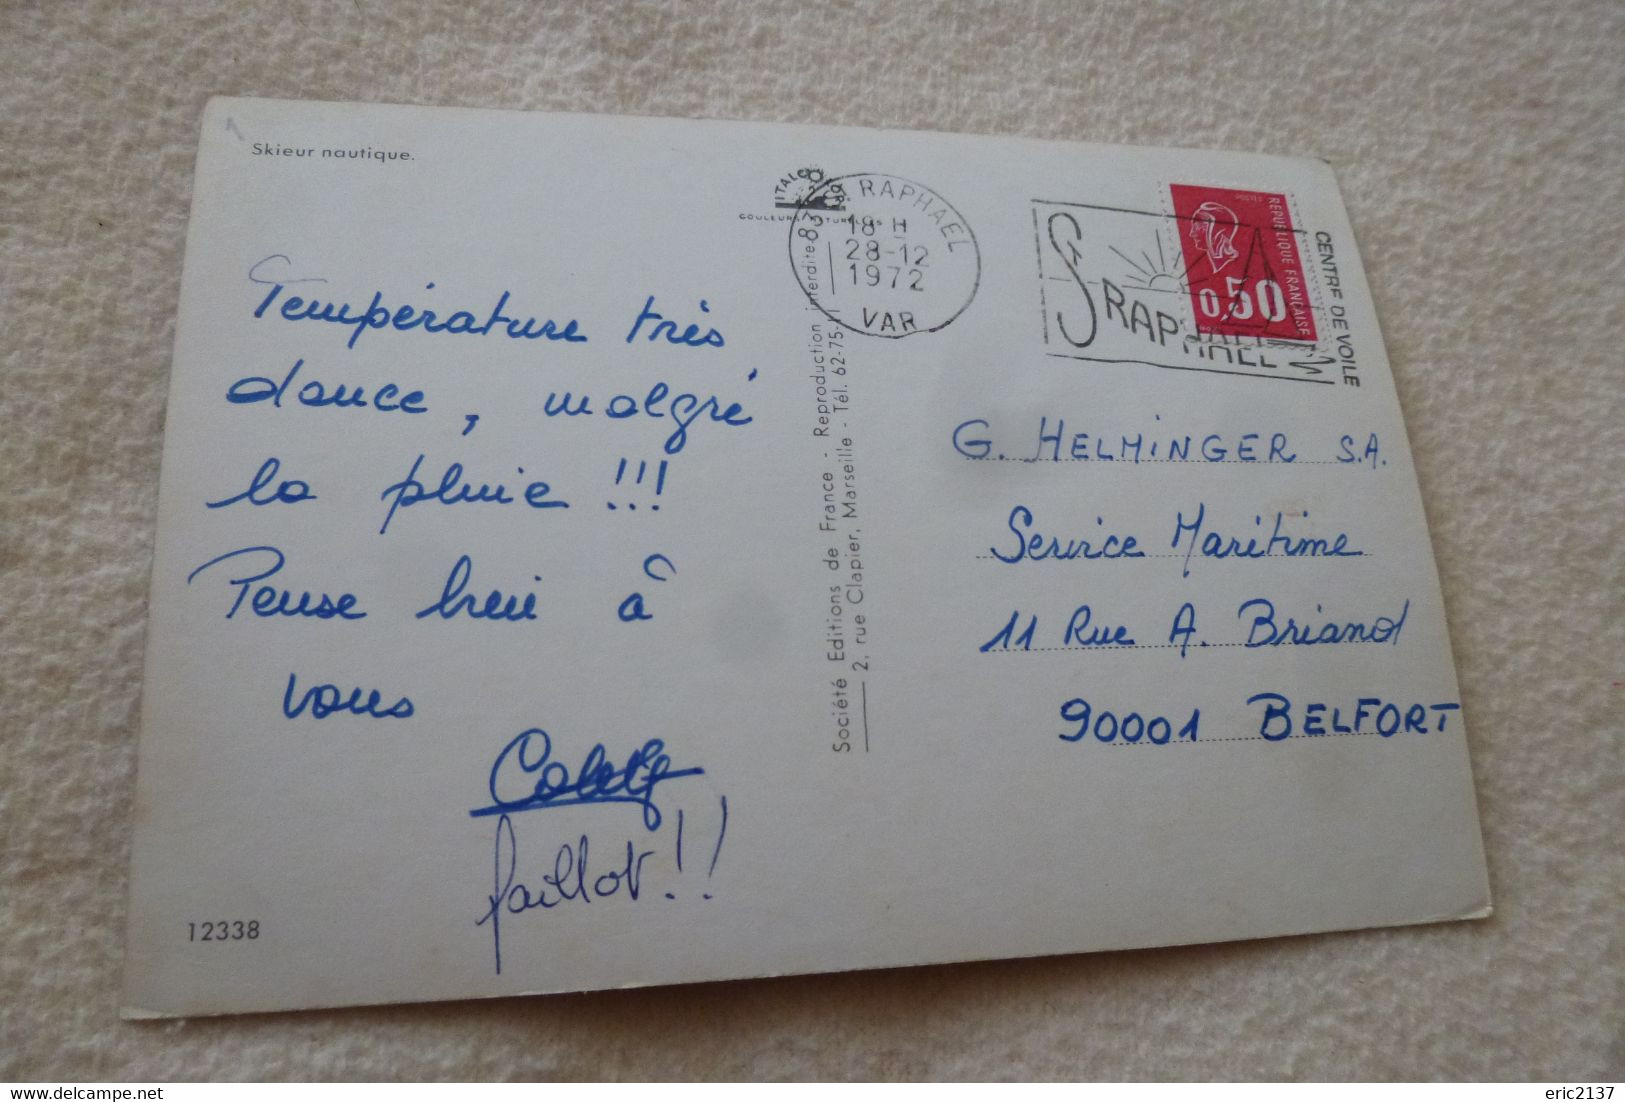 Skieur nautique.
Température très
douce, malgré
la pluie !!!
Pense bien à
vous
Colette
faillot!!
12338
Société Editions de France - Reproduction interdite
2, rue Clapier, Marseille - Tél. 62-75-11
83 RAPHAEL
18 H
28-12
1972
VAR
ST RAPHAEL
CENTRE DE VOILE
REPUBLIQUE FRANÇAISE
0,50
G. HELMINGER S.A.
Service Maritime
11 Rue A. Briand
90001 BELFORT
eric2137